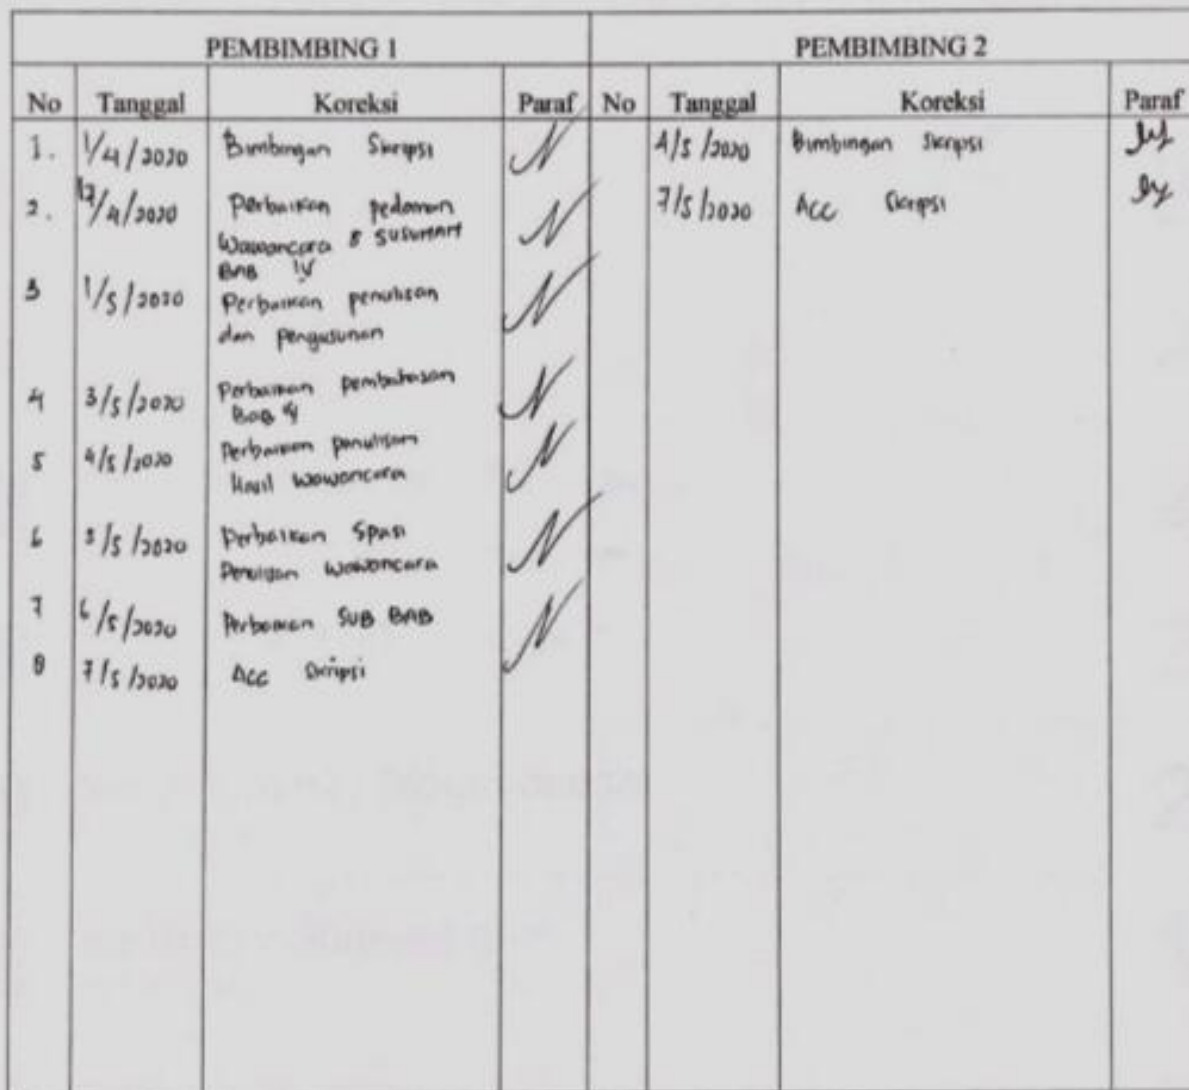 PEMBIMBING 1 PEMBIMBING 2
No Tanggal Koreksi Paraf No Tanggal Koreksi Paraf
1. 1/4/2020 Bimbingan Skripsi 4/5/2020 Bimbingan Skripsi
2. 12/4/2020 Perbaikan pedoman 7/5/2020 Acc Skripsi
Wawancara &
BAB IV
3 1/5/2020 Perbaikan penulisan
dan pengusunan
4 3/5/2020 Perbaikan pembahasan
BAB 4
5 4/5/2020 Perbaikan penulisan
Hasil wawancara
6 5/5/2020 Perbaikan Spasi
Penulisan wawancara
7 6/5/2020 Perbaikan SUB BAB
8 7/5/2020 Acc Skripsi